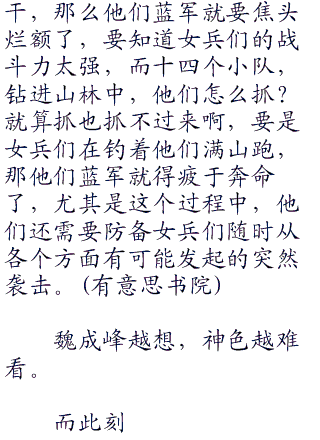 干，那么他们蓝军就要焦头
烂额了，要知道女兵们的战
斗力太强，而十四个小队，
钻进山林中，他们怎么抓？
就算抓也抓不过来啊，要是
女兵们在钓着他们满山跑，
那他们蓝军就得疲于奔命
了，尤其是这个过程中，他
们还需要防备女兵们随时从
各个方面有可能发起的突然
袭击。(有意思书院)
魏成峰越想，神色越难
看。
而此刻